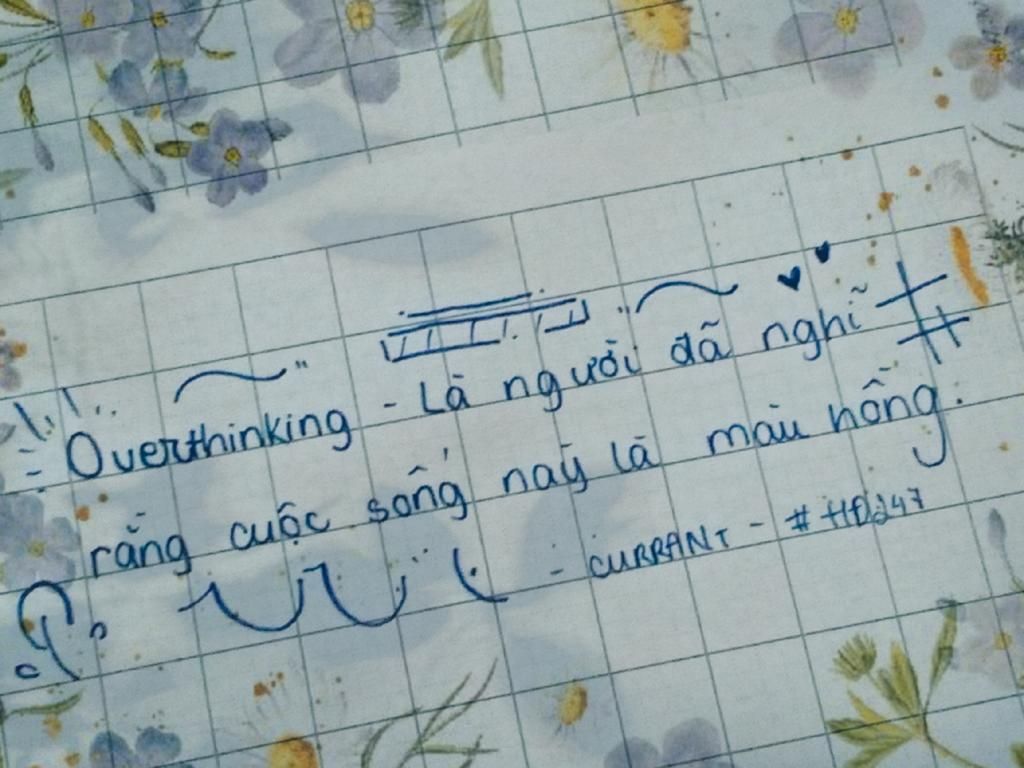 Overthinking - Là người đã nghĩ
rằng cuộc sống này là màu hồng.
- CURRANT - #HĐ247